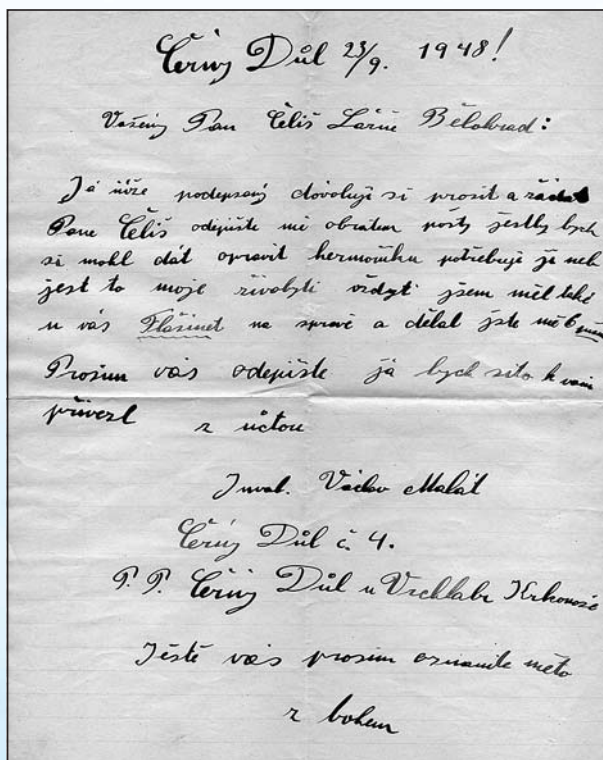 Černý Důl 23/9. 1948!
Važeny Pan Čéliš Lázně Bělohrad:
Já níže podepsaný dovoluji si prosit a žádat
Pane Čéliš odepište mě obratem pošty jestly bych
si mohl dát opravit hermoniku potřebuji ji neb
jest to moje živobyti vždyti jsem měl také
u vás Flašinet na spravě a dělal jste mě 6
Prosim vás odepište já bych sito k vám
přivezl z učtou
Inval. Václav Malát
Černý Důl č. 4.
P. P. Černý Důl u Vrchlabí Krkonoše
Ještě vás prosim oznamte měto
z bohem